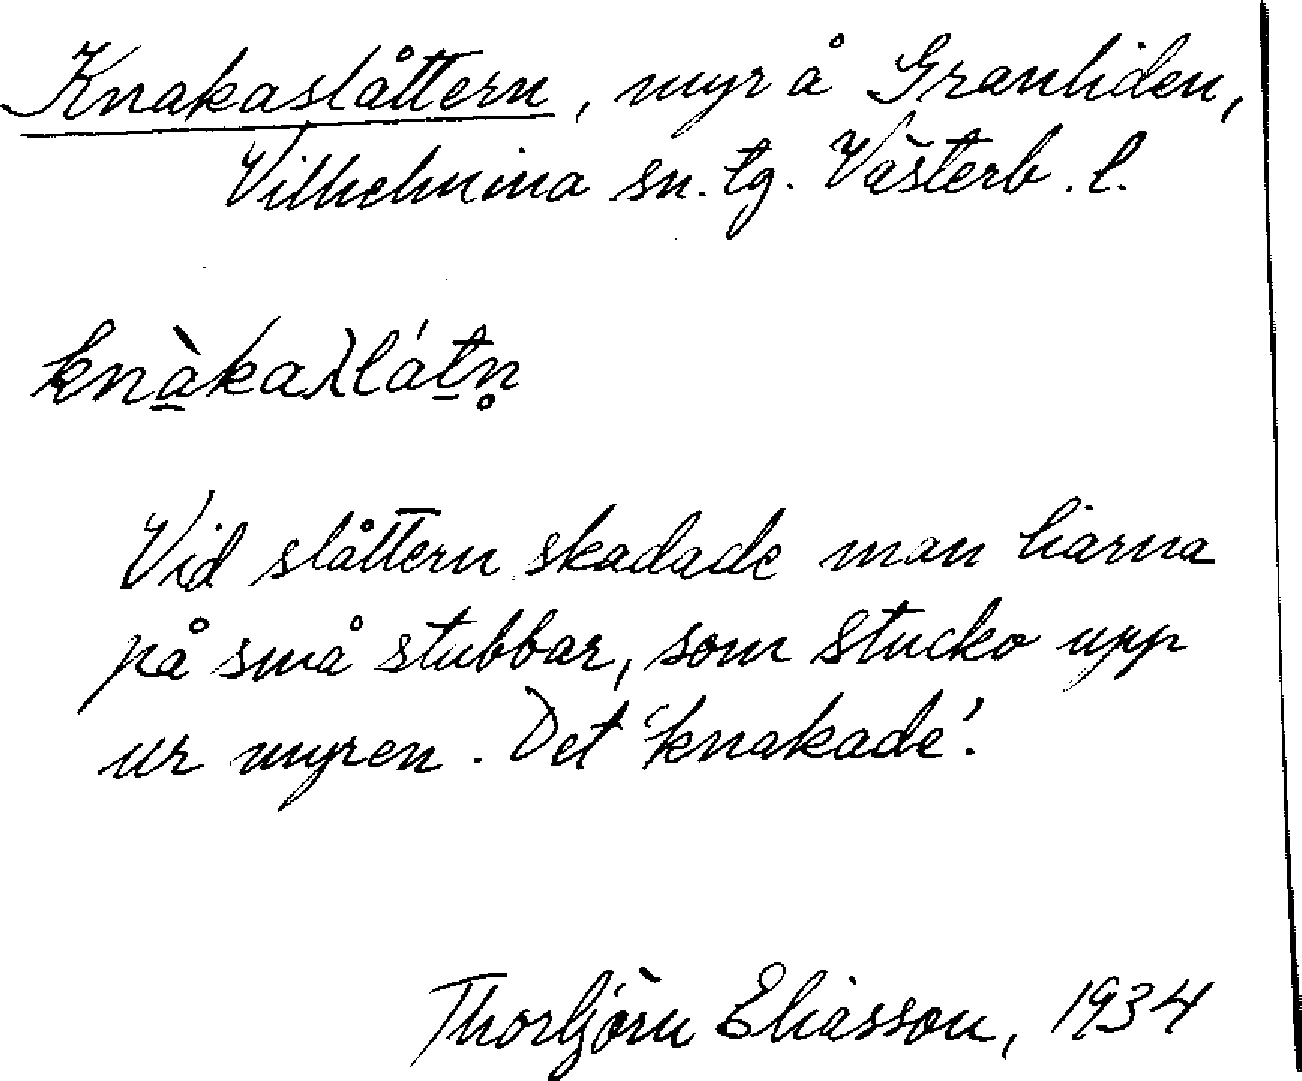 Knakaslåttern, myr å Granliden,
Vilhelmina sn. tg. Västerb. l.
knàkaλlát̠n̥
Vid slåttern skadade man liarna
på små stubbar, som stucko upp
ur myren. Det 'knakade'.
Thorbjörn Eliasson, 1934